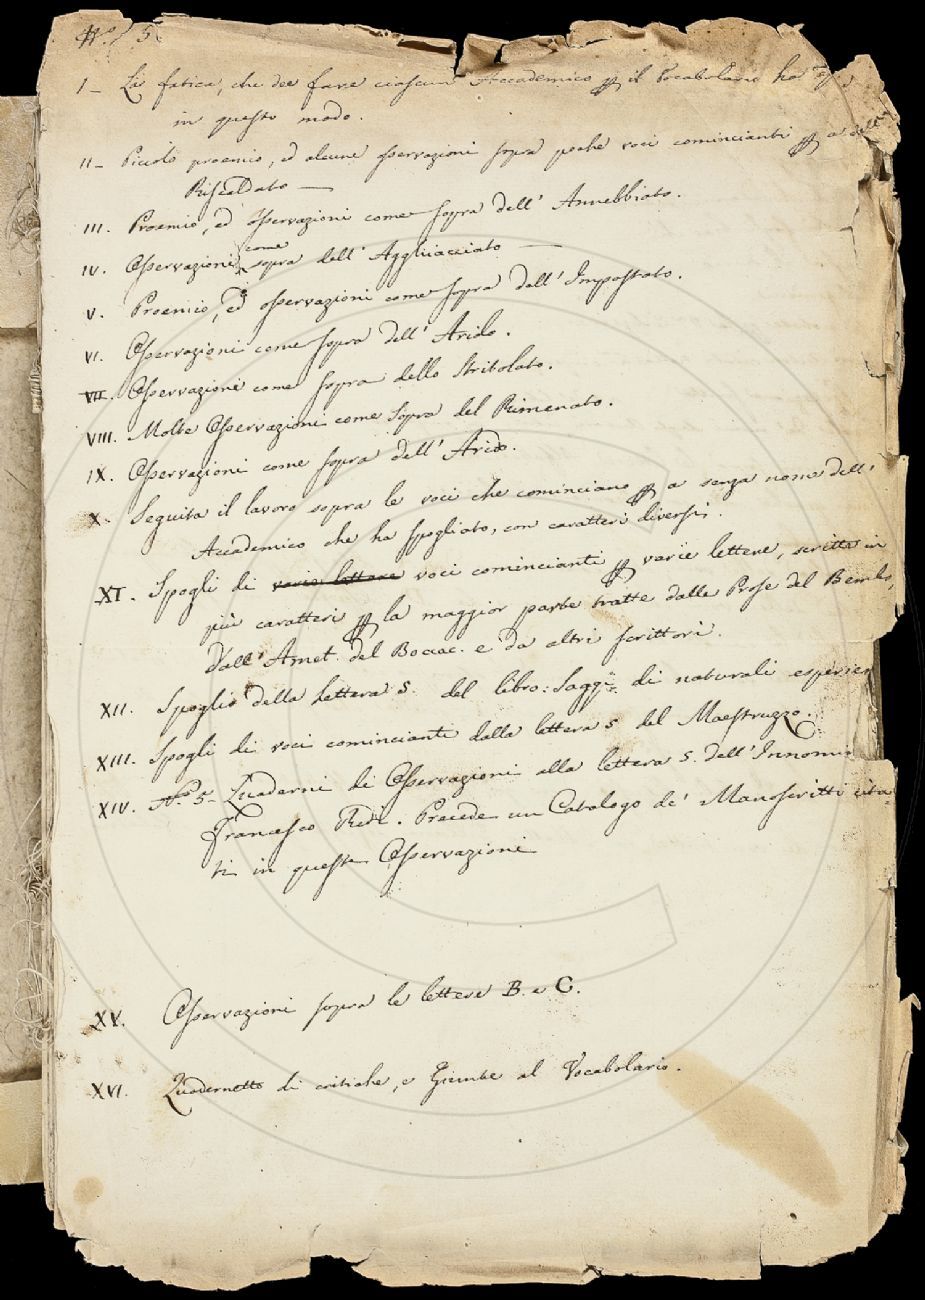 N.° 5
I – La fatica, che dee fare ciascun Accademico p il Vocabolario ha
in questo modo.
II – Picciolo proemio, ed alcune osservazioni sopra poche voci comincianti p a dell'
Riscaldato —
III. Proemio, ed osservazioni come sopra dell'Annebbiato.
IV. Osservazioni come sopra dell'Agghiacciato —
V. Proemio, ed osservazioni come sopra dell'Impastato.
VI. Osservazioni come sopra dell'Arido.
VII. Osservazioni come sopra dello Stritolato.
VIII. Molte Osservazioni come sopra del Rimenato.
IX. Osservazioni come sopra dell'Arido.
X. Seguita il lavoro sopra le voci che cominciano p a senza nome dell'
Accademico che ha spogliato, con caratteri diversi.
XI. Spogli di varie lettere voci comincianti p varie lettere, scritte in
più caratteri p la maggior parte tratte dalle Prose del Bembo,
dall'Amet. del Boccac. e da altri scrittori.
XII. Spoglio della lettera S. del libro: Saggi di naturali esperien
XIII. Spogli di voci comincianti dalla lettera S del Maestruzzo.
XIV. N.° 5 – Quaderni di Osservazioni alla lettera S. dell'Innomin
Francesco Redi. Precede un Catalogo de' Manoscritti cita-
ti in queste Osservazioni
XV. Osservazioni sopra le lettere B. e C.
XVI. Quadernetto di critiche, e Giunte al Vocabolario.